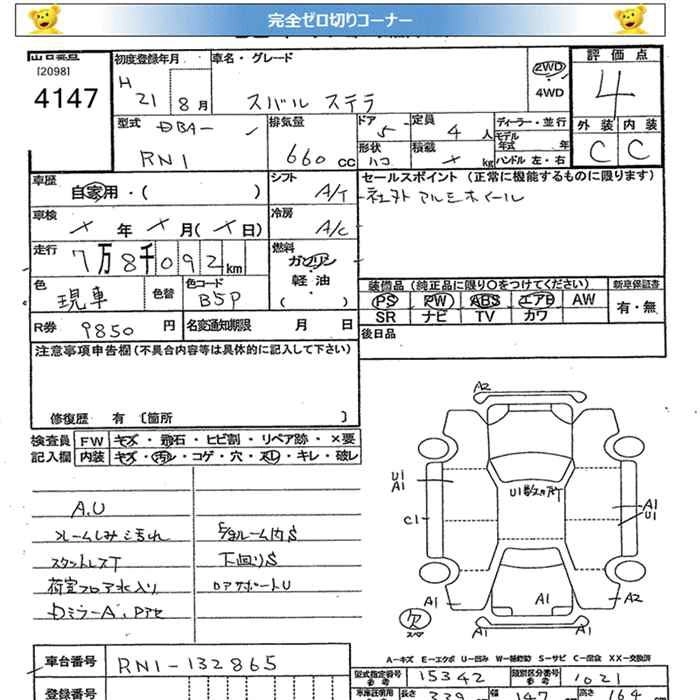 完全ゼロ切りコーナー
[2098]
4147
初度登録年月
H 21 8月
車名・グレード
スバル ステラ
2WD
・
4WD
評価点
4
外装 内装
C C
型式
DBA-
RN1
排気量
660 cc
ドア 5
形状 ハコ
定員 4 人
積載 × kg
ディーラー・並行
モデル年式 年
ハンドル 左・右
車歴
自家用・( )
シフト
A/T
セールスポイント(正常に機能するものに限ります)
社外アルミホイール
車検
× 年 × 月(× 日)
冷房
A/C
走行
7万8千092km
燃料
ガソリン
軽油
( )
色
現車
色替
色コード
B5P
装備品(純正品に限り○をつけてください)
新車保証書
PS PW ABS エアB AW
SR ナビ TV カワ
有・無
R券 9850 円
名変通知期限 月 日
後日品
注意事項申告欄(不具合内容等は具体的に記入して下さい)
修復歴 有 〔箇所 〕
検査員
記入欄
FW キズ・飛石・ヒビ割・リペア跡・×要
内装 キズ・汚れ・コゲ・穴・スレ・キレ・破レ
A.U
フレームしみ汚れ
スタットレスT
荷室フロア水入り
ルーム内S
下回りS
ドアサポートU
A2
U1
A1
U1数ヶ所
A1
U1
C1
A1
A1
A2
A1
欠
スペア
A-キズ E-エクボ U-凹み W-補修跡 S-サビ C-腐食 XX-交換済
車台番号
RN1-132865
型式指定番号
参考
15342
類別区分番号
参考
1021
登録番号
長さ 339
幅 147
高さ 164